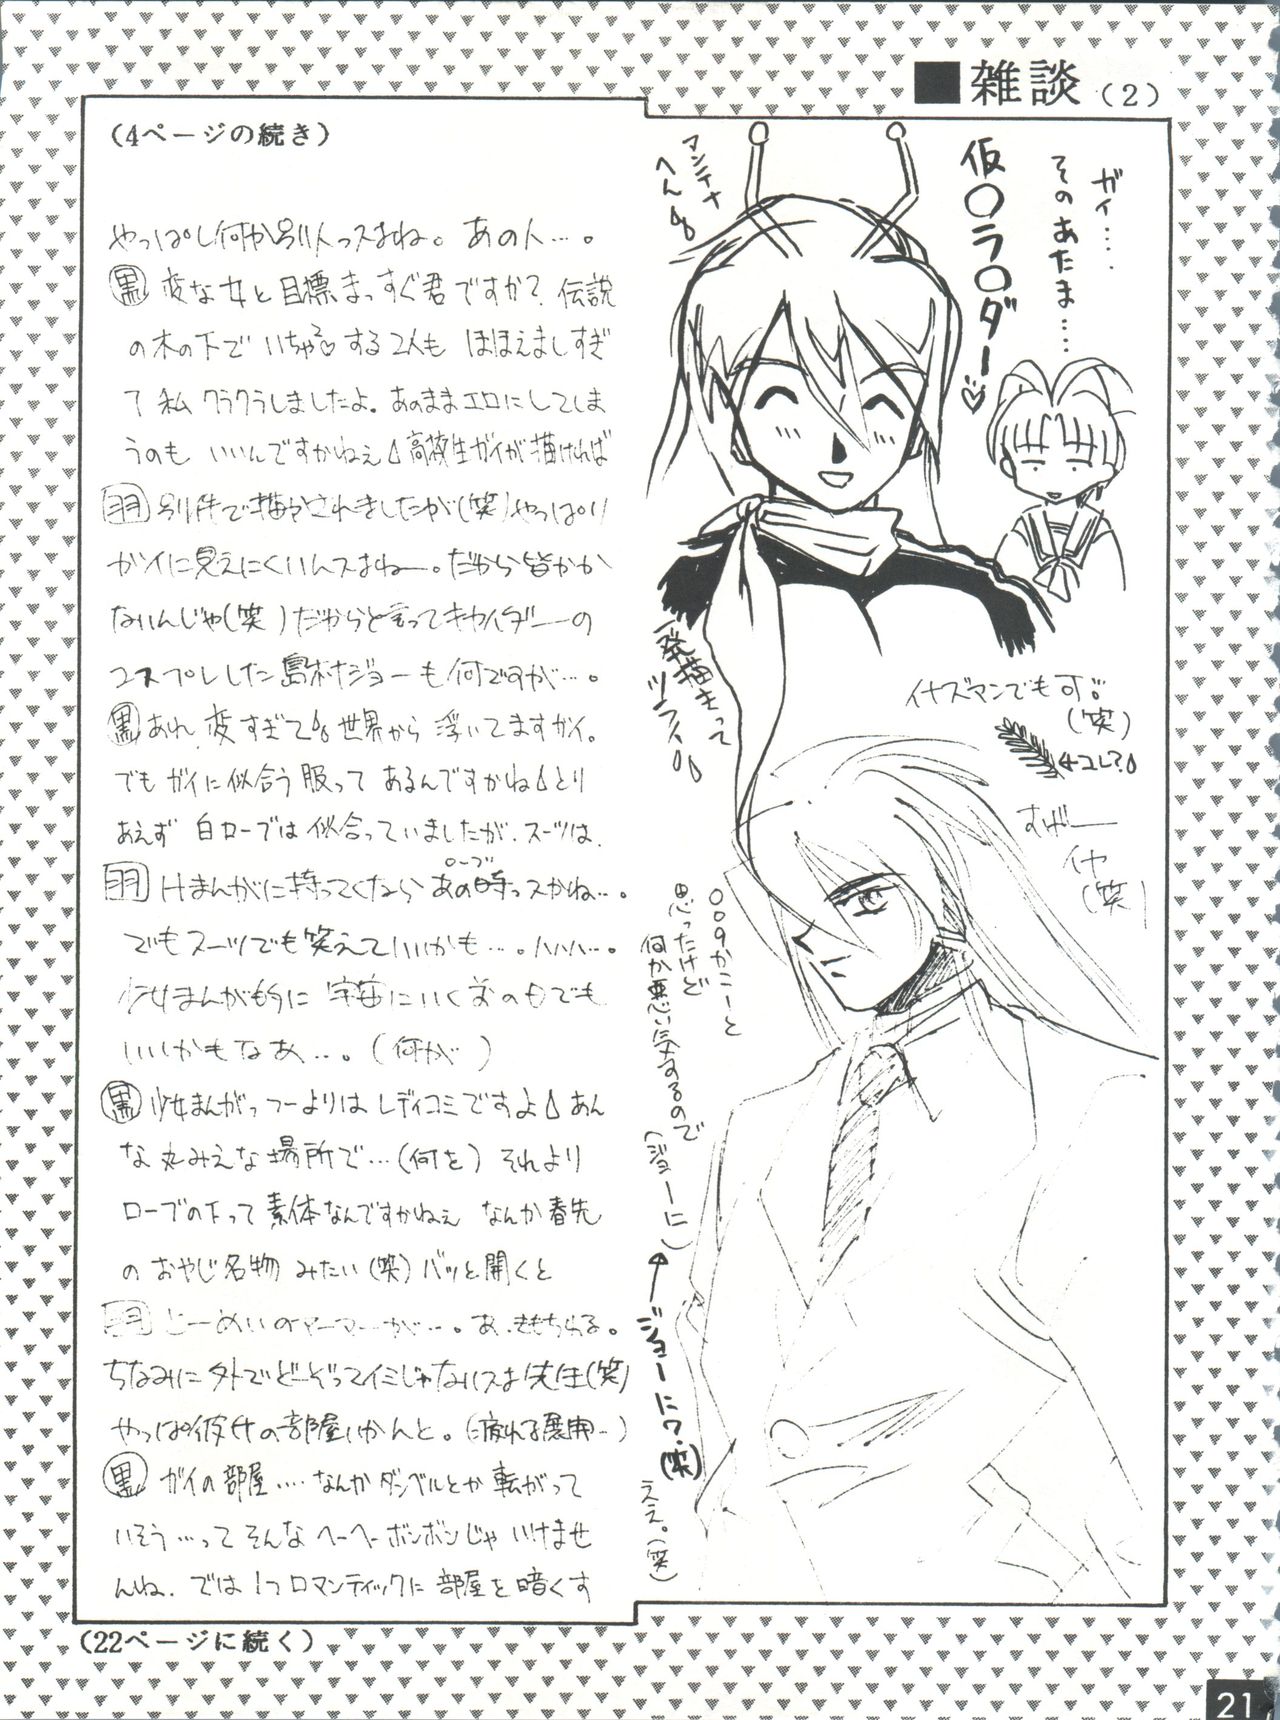 ■雑談（2）
（4ページの続き）
やっぱし何か別人っスよね。あの人…。
黒 変な女と目標まっすぐ君ですか？伝説
の木の下でいちゃ²♡する2人もほほえましすぎ
て私クラクラしましたよ。あのままエロにしてしま
うのもいいんですかねぇ 高校生ガイが描ければ
羽 別件で描かされましたが（笑）やっぱり
ガイに見えにくいんスよねー。だから皆かか
ないんじゃ（笑）だからと言ってキカイダーの
コスプレした島村ジョーも何ですが…。
黒 あれ、変すぎて 世界から浮いてますガイ。
でもガイに似合う服ってあるんですかね とり
あえず白ローブは似合っていましたが、スーツは、
羽 Hまんがに持ってくならあの時（ローブ）っスかね…。
でもスーツでも笑えていいかも…。ハハハ…。
少女まんが的に宇宙にいく前のでも
いいかもなあ…。（何が）
黒 少女まんがっつーよりはレディコミですよ あん
な丸みえな場所で…（何を）それより
ローブの下って素体なんですかねぇ なんか春先
のおやじ名物みたい（笑）バッと開くと
羽 とーめいのアーマーが…。あ、きもちわる。
ちなみに外でどーぞってイミじゃないスよ先生（笑）
やっぱ彼女の部屋いかんと。（に疲れる展開…）
黒 ガイの部屋‥‥なんかダンベルとか転がって
いそう…ってそんなヘーヘーボンボンじゃいけませ
んね、では1つロマンティックに部屋を暗くす
（22ページに続く）
ガイ‥‥
そのあたま‥‥
仮〇ラ〇ダー♡
アンテナ
へん
一発描きって
ツライ
イナズマンでも可
（笑）
コレ？
すげー
イヤ
（笑）
009かこーと
思ったけど
何か悪い気するので
（ジョーに）
←ジョーに？（笑）
ええ。（笑）
21